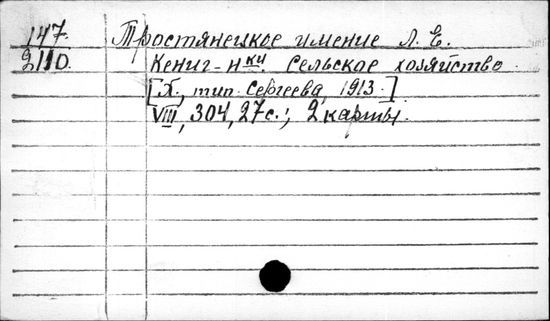 147. Тростянецкое имение Л. Е.
2110. Кениг-н-ки. Сельское хозяйство
[Х., тип. Сергеева, 1913.]
VIII, 304, 27 с.; 2 карты.